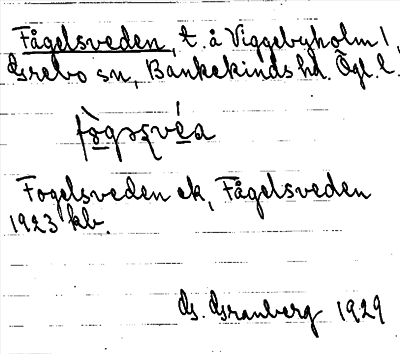 Fågelsveden, t. å Viggebyholm 1,
Grebo sn, Bankekinds hd. Ögl. l.
fò̱gəsvé̱a
Fogelsveden ek, Fågelsveden
1923 kb.
G. Granberg 1929